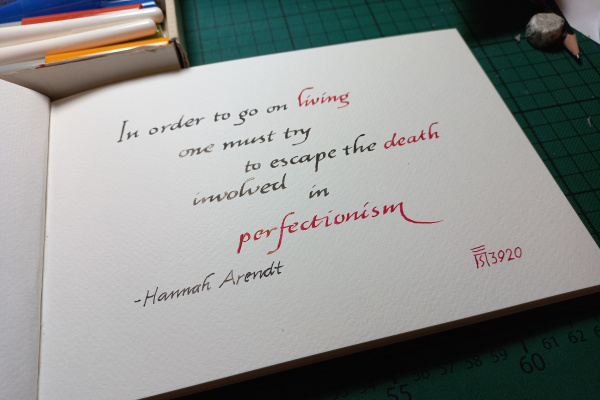 In order to go on living
one must try
to escape the death
involved in
perfectionism
-Hannah Arendt
3920
55
60
61
62